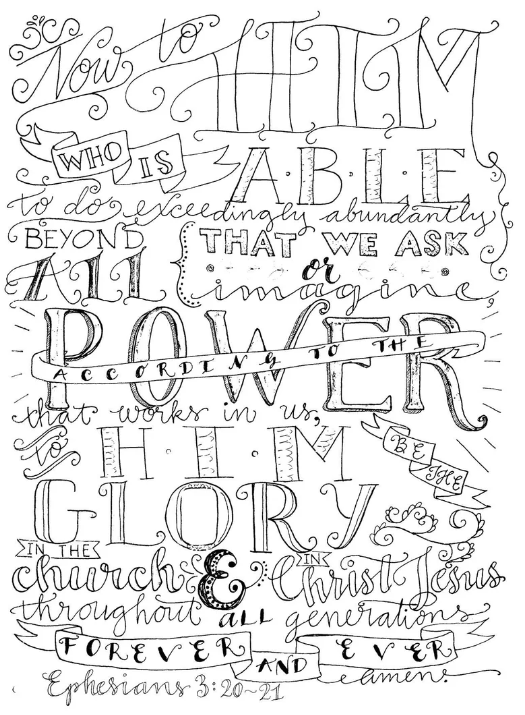 Now to HIM
WHO IS A·B·L·E
to do exceedingly abundantly
BEYOND ALL { THAT WE ASK
or
imagine,
ACCORDING TO THE
POWER
that works in us,
to H·I·M BE THE
GLORY
IN THE church & IN Christ Jesus
throughout ALL generations
FOREVER AND EVER
amen.
Ephesians 3:20~21